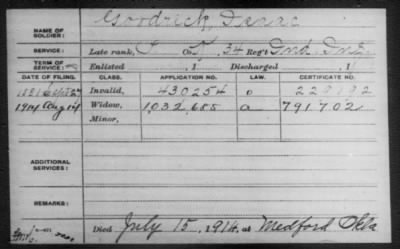 NAME OF SOLDIER: Goodrick, Isaac
SERVICE: Late rank, Co. 34 Reg't Ind. Inf.
TERM OF SERVICE: Enlisted , 1 Discharged , 1
DATE OF FILING. CLASS. APPLICATION NO. LAW. CERTIFICATE NO.
1881 Invalid, 430254
1914 Aug 14 Widow, 1,032,685 a 791,702
Minor,
ADDITIONAL SERVICES:
REMARKS:
Died July 15, 1914, at Medford Okla